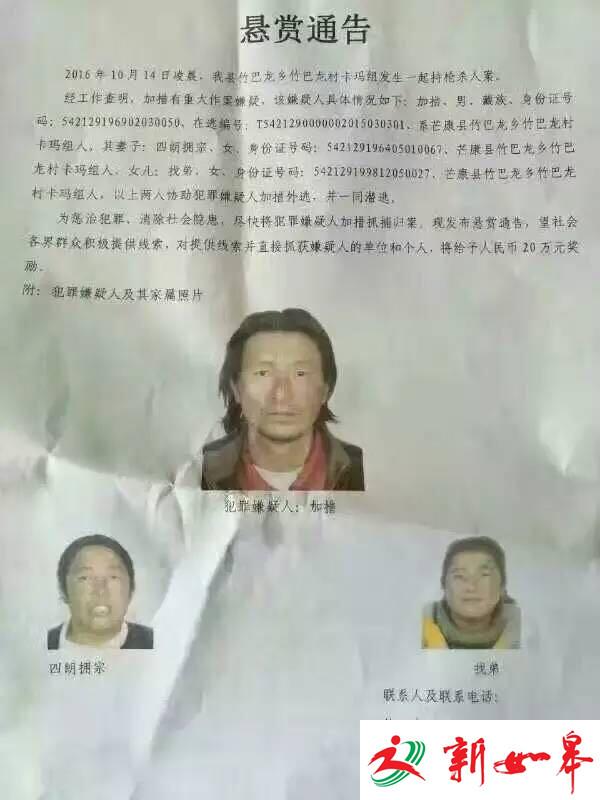 悬赏通告
2016年10月14日凌晨，我县竹巴龙乡竹巴龙村卡玛组发生一起持枪杀人案。
经工作查明，加措有重大作案嫌疑，该嫌疑人具体情况如下：加措、男、藏族、身份证号
码：542129196902030050、在逃编号：T5421290000002015030301、系芒康县竹巴龙乡竹巴龙村
卡玛组人，其妻子：四朗拥宗、女、身份证号码：542129196405010067、芒康县竹巴龙乡竹巴
龙村卡玛组人，女儿：找弟、女、身份证号码：542129199812050027、芒康县竹巴龙乡竹巴龙
村卡玛组人，以上两人协助犯罪嫌疑人加措外逃，并一同潜逃。
为惩治犯罪、消除社会隐患，尽快将犯罪嫌疑人加措抓捕归案。现发布悬赏通告，望社会
各界群众积极提供线索，对提供线索并直接抓获嫌疑人的单位和个人，将给予人民币20万元奖
励。
附：犯罪嫌疑人及其家属照片
犯罪嫌疑人：加措
四朗拥宗
找弟
联系人及联系电话：
新如皋